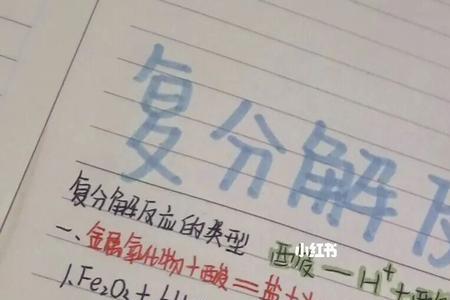 复分解反
复分解反应的类型
小红书
酸—H⁺+酸
一、金属氧化物+酸=盐+
1.Fe₂O₃+